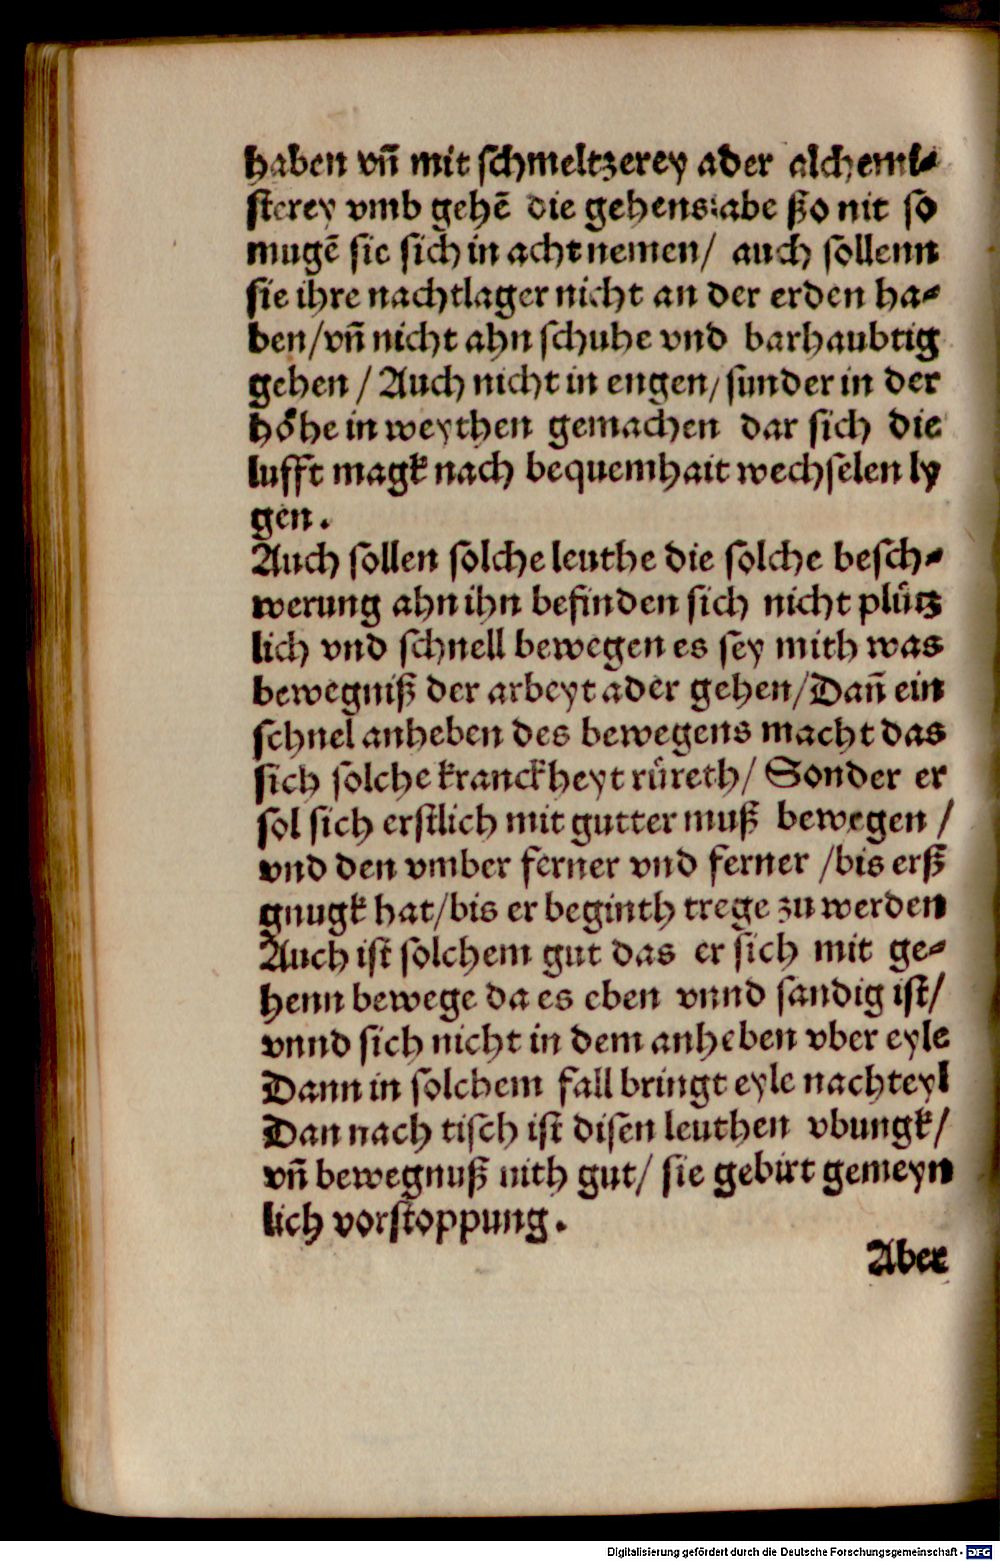 haben vñ mit schmeltzerey ader alchemi⸗
sterey vmb gehē die gehens abe ßo nit so
mugē sie sich in acht nemen/ auch sollenn
sie ihre nachtlager nicht an der erden ha⸗
ben/vñ nicht ahn schuhe vnd barhaubtig
gehen / Auch nicht in engen/ sunder in der
hoͤhe in weythen gemachen dar sich die
lufft magk nach bequemhait wechselen ly
gen.
Auch sollen solche leuthe die solche besch⸗
werung ahn ihn befinden sich nicht pluͤtz
lich vnd schnell bewegen es sey mith was
bewegniß der arbeyt ader gehen/Dañ ein
schnel anheben des bewegens macht das
sich solche kranckheyt ruͤreth/ Sonder er
sol sich erstlich mit gutter muß bewegen /
vnd den vmber ferner vnd ferner /bis erß
gnugk hat/bis er beginth trege zu werden
Auch ist solchem gut das er sich mit ge⸗
henn bewege da es eben vnnd sandig ist/
vnnd sich nicht in dem anheben vber eyle
Dann in solchem fall bringt eyle nachteyl
Dan nach tisch ist disen leuthen vbungk/
vñ bewegnuß nith gut/ sie gebirt gemeyn
lich vorstoppung.
Aber
Digitalisierung gefördert durch die Deutsche Forschungsgemeinschaft - DFG